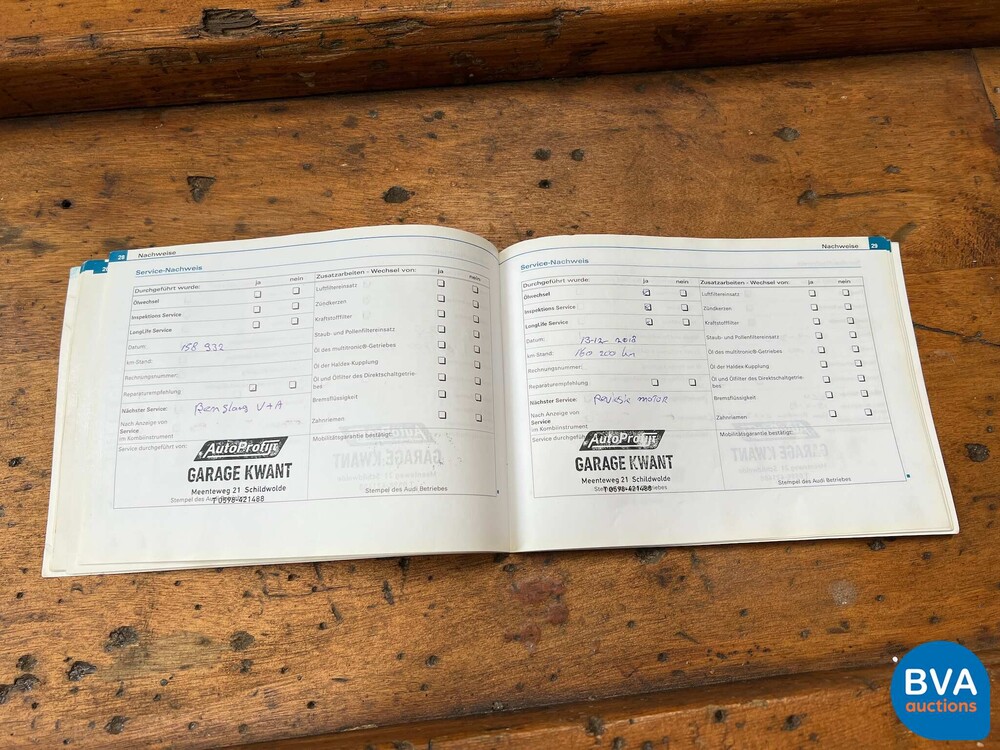 28 Nachweise
Service-Nachweis
Durchgeführt wurde: ja nein
Ölwechsel
Inspektions Service
LongLife Service
Datum: 158 932
km-Stand:
Rechnungsnummer:
Reparaturempfehlung
Nächster Service: V+A
Nach Anzeige von
Service
im Kombiinstrument
Service durchgeführt von:
AutoProfijt
GARAGE KWANT
Meenteweg 21 Schildwolde
Stempel des Audi Betriebes
T 0598-421488
Zusatzarbeiten - Wechsel von: ja nein
Luftfiltereinsatz
Zündkerzen
Kraftstofffilter
Staub- und Pollenfiltereinsatz
Öl des multitronic®-Getriebes
Öl der Haldex-Kupplung
Öl und Ölfilter des Direktschaltgetrie-
bes
Bremsflüssigkeit
Zahnriemen
Mobilitätsgarantie bestätigt:
Stempel des Audi Betriebes
Nachweise 29
Service-Nachweis
Durchgeführt wurde: ja nein
Ölwechsel
Inspektions Service
LongLife Service
Datum: 13-12-2018
km-Stand: 160 200 km
Rechnungsnummer:
Reparaturempfehlung
Nächster Service: Revisie motor
Nach Anzeige von
Service
im Kombiinstrument
Service durchgeführt
AutoProfijt
GARAGE KWANT
Meenteweg 21 Schildwolde
T 0598-421488
Zusatzarbeiten - Wechsel von: ja nein
Luftfiltereinsatz
Zündkerzen
Kraftstofffilter
Staub- und Pollenfiltereinsatz
Öl des multitronic®-Getriebes
Öl der Haldex-Kupplung
Öl und Ölfilter des Direktschaltgetrie-
bes
Bremsflüssigkeit
Zahnriemen
Mobilitätsgarantie bestätigt:
Stempel des Audi Betriebes
BVA
auctions